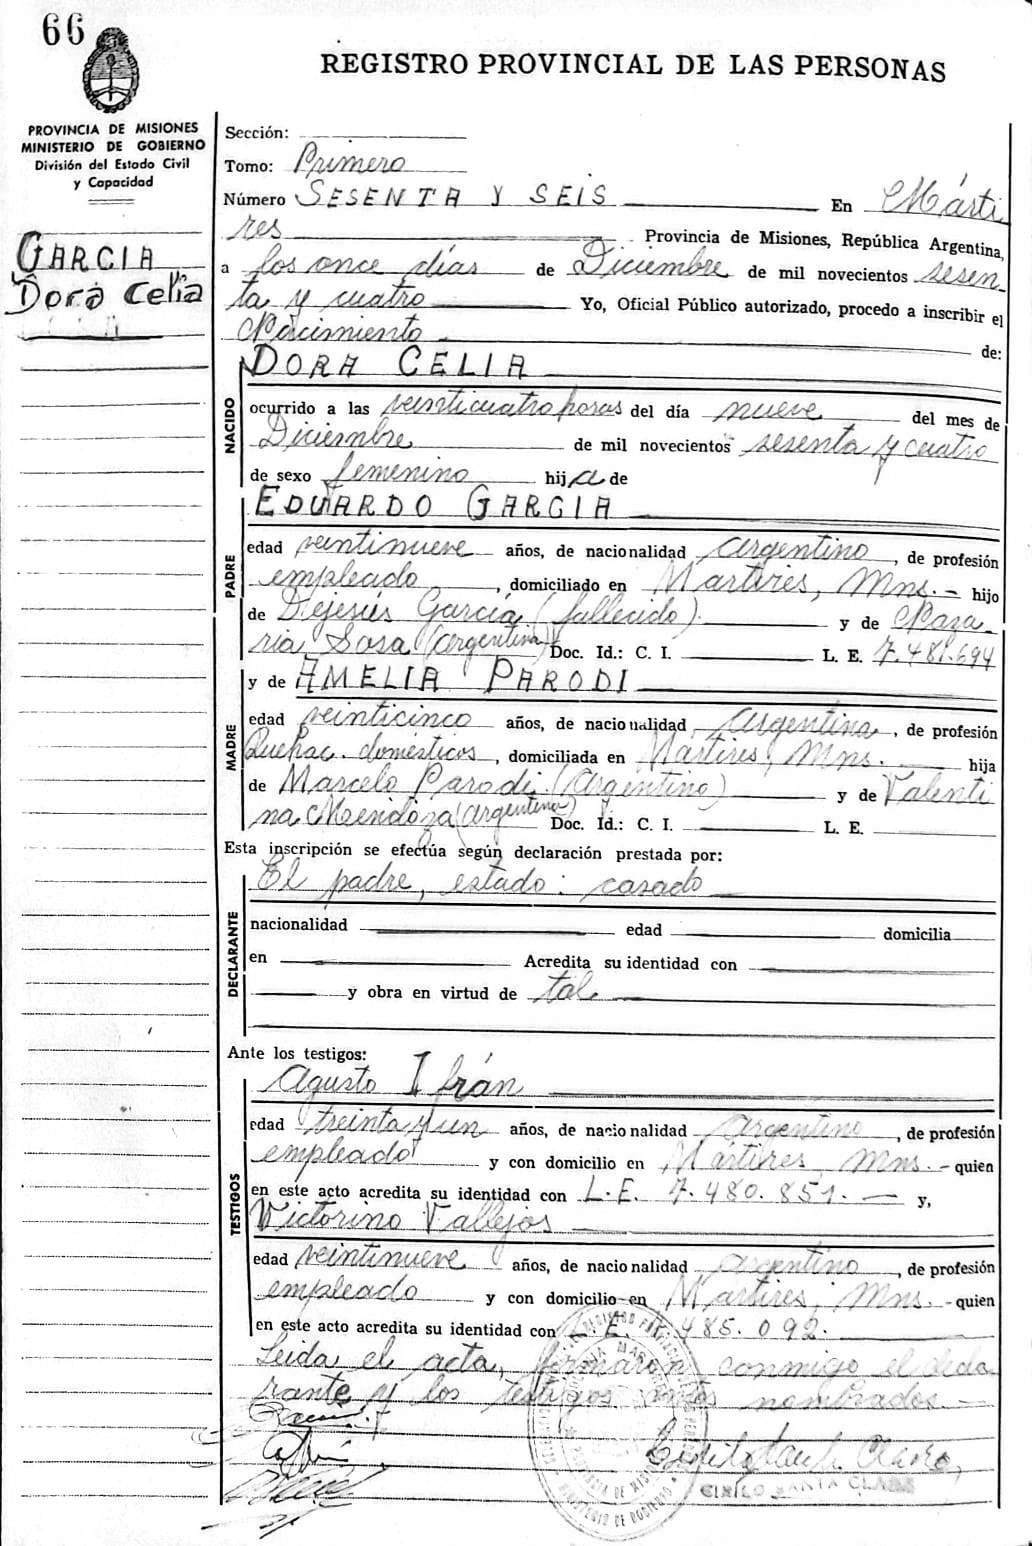 66
REGISTRO PROVINCIAL DE LAS PERSONAS
PROVINCIA DE MISIONES
MINISTERIO DE GOBIERNO
División del Estado Civil
y Capacidad
GARCIA
Dora Celia
Sección:
Tomo: Primero
Número SESENTA Y SEIS En Márti
res Provincia de Misiones, República Argentina,
a los once días de Diciembre de mil novecientos sesen
ta y cuatro Yo, Oficial Público autorizado, procedo a inscribir el
Nacimiento de:
NACIDO
DORA CELIA
ocurrido a las veinticuatro horas del día nueve del mes de
Diciembre de mil novecientos sesenta y cuatro
de sexo femenino hija de
PADRE
EDUARDO GARCIA
edad veintinueve años, de nacionalidad argentino, de profesión
empleado, domiciliado en Martires, Mns. - hijo
de Dejesús García (fallecido) y de Naza
ria Sosa (argentina) Doc. Id.: C. I. L. E. 7.481.694
MADRE
y de AMELIA PARODI
edad veinticinco años, de nacionalidad argentina, de profesión
Quehac. domésticos, domiciliada en Martires, Mns. hija
de Marcelo Parodi (Argentino) y de Valenti
na Mendoza (argentina) Doc. Id.: C. I. L. E.
Esta inscripción se efectúa según declaración prestada por:
DECLARANTE
El padre, estado: casado
nacionalidad edad domicilia
en Acredita su identidad con
y obra en virtud de tal
Ante los testigos:
TESTIGOS
Agusto Ifrán
edad treinta y un años, de nacionalidad argentino, de profesión
empleado y con domicilio en Mártires, Mns. - quien
en este acto acredita su identidad con L. E. 7.480.851. - y,
Victorino Vallejos
edad veintinueve años, de nacionalidad argentino, de profesión
empleado y con domicilio en Martires, Mns. - quien
en este acto acredita su identidad con L. E. 485.092.
Leida el acta, firmaron conmigo el decla
rante y los testigos antes nombrados. -
CIRILO SANTA CLARA